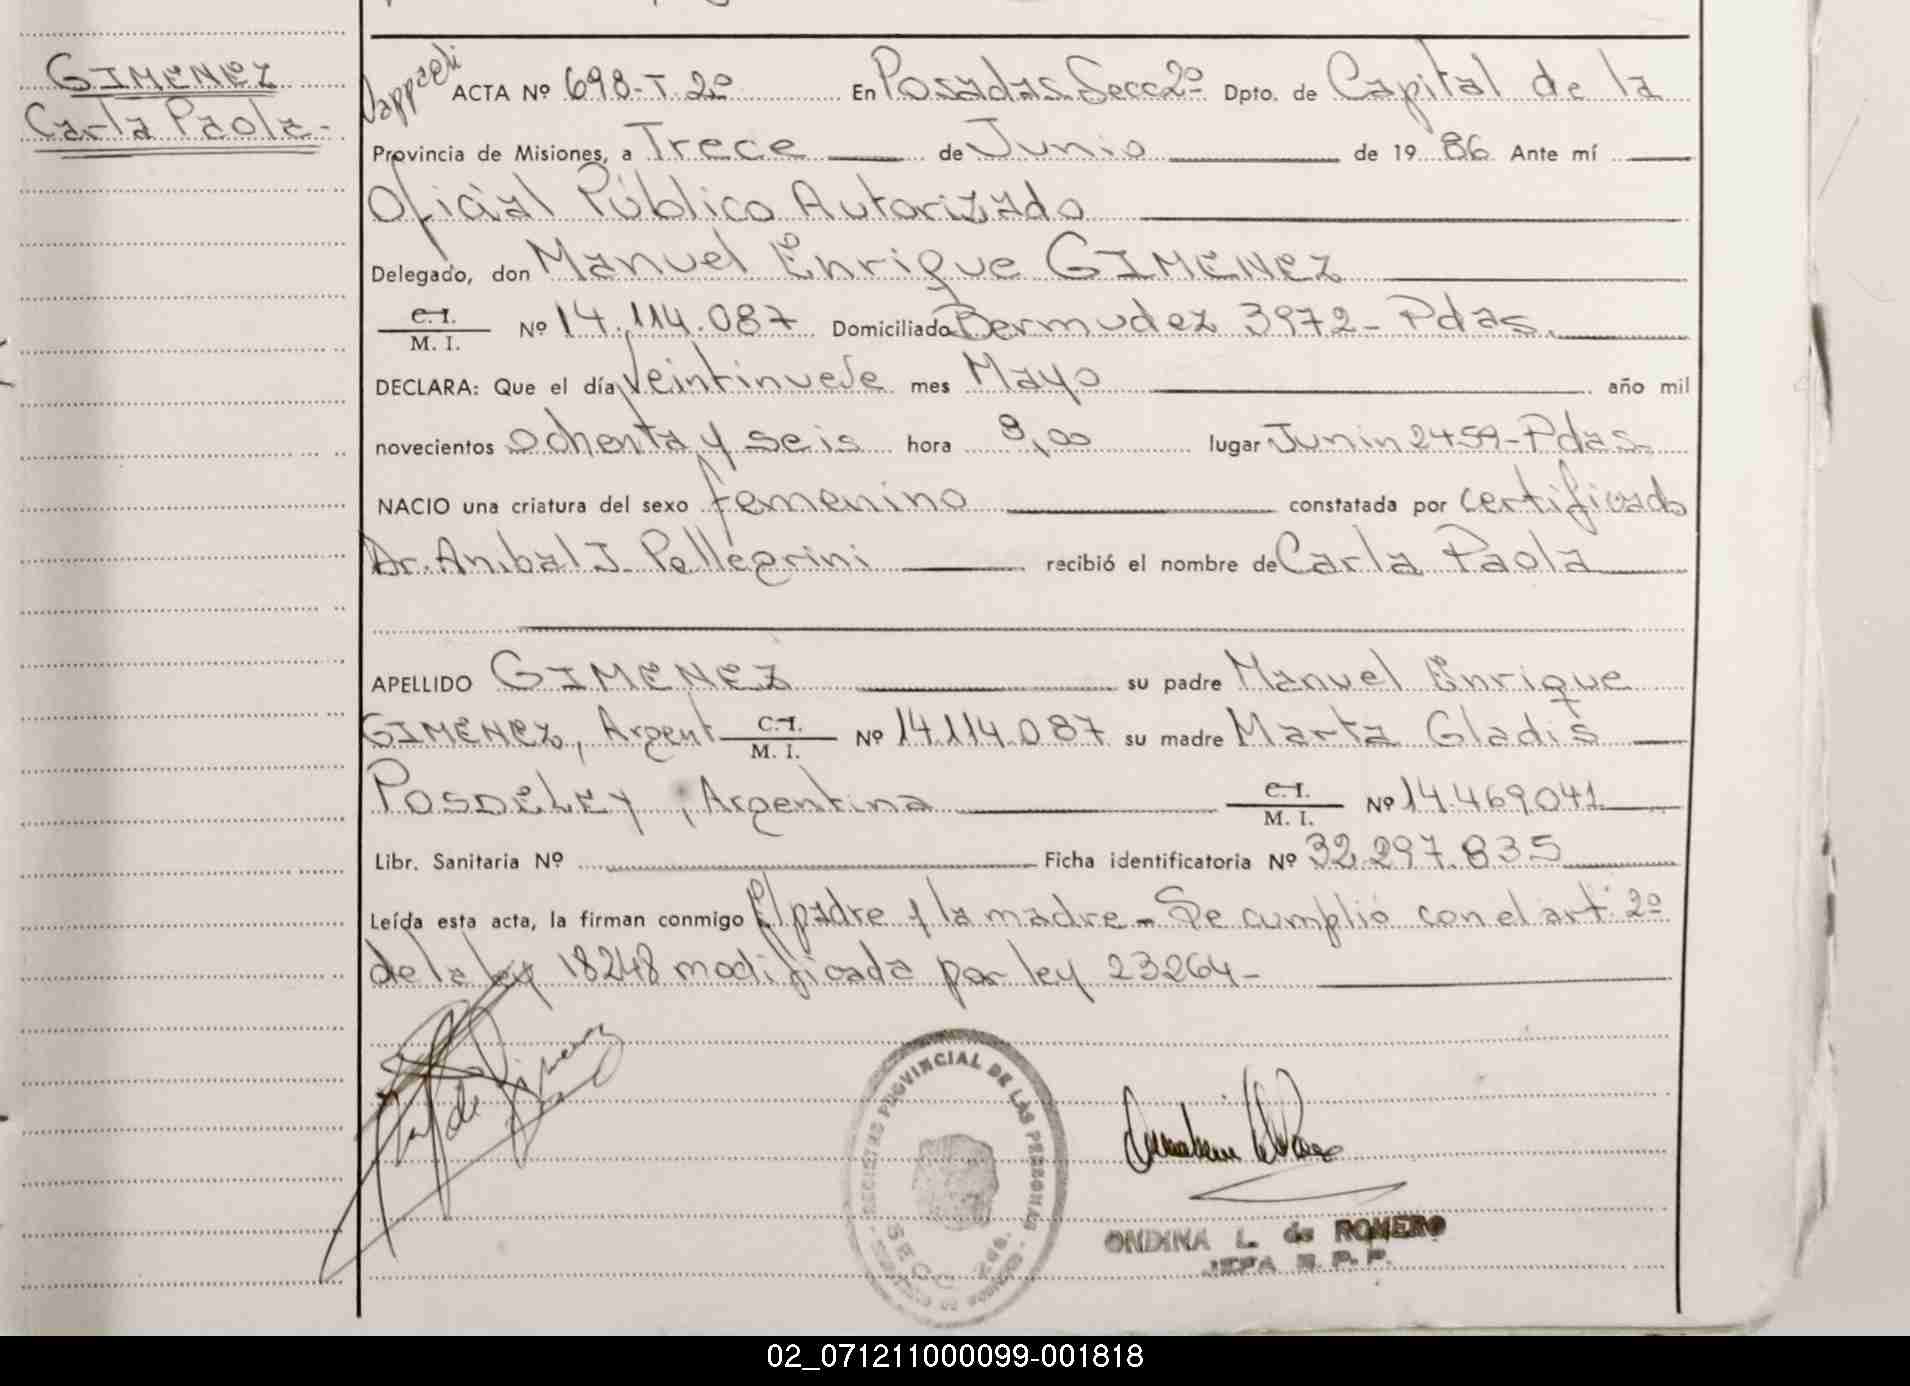 GIMENEZ
Carla Paola-
ACTA Nº 698-T.2º En Posadas Secc 2º Dpto. de Capital de la
Provincia de Misiones, a Trece de Junio de 19 86 Ante mí
Oficial Público Autorizado
Delegado, don Manuel Enrique GIMENEZ
C.I.
M. I. Nº 14.114.087 Domiciliado Bermudez 3972-Pdas.
DECLARA: Que el día Veintinueve mes Mayo año mil
novecientos ochenta y seis hora 8,00 lugar Junin 2459-Pdas.
NACIO una criatura del sexo femenino constatada por certificado
Dr. Anibal J. Pellegrini recibió el nombre de Carla Paola
APELLIDO GIMENEZ su padre Manuel Enrique
GIMENEZ, Argent C.I.
M. I. Nº 14.114.087 su madre Marta Gladis
POSDELEY, Argentina C.I.
M. I. Nº 14.469.041
Libr. Sanitaria Nº Ficha identificatoria Nº 32.297.835
Leída esta acta, la firman conmigo El padre y la madre- Se cumplió con el art. 2º
de la ley 18248 modificada por ley 23264-
REGISTRO PROVINCIAL DE LAS PERSONAS
SECC 2da.
ONDINA L. de ROMERO
JEFA R. P. P.
02_071211000099-001818